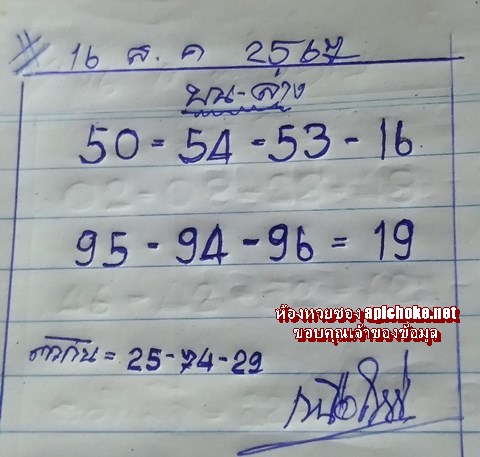 16 ส.ค 2567
บน-ล่าง
50 = 54 - 53 - 16
95 - 94 - 96 = 19
ห้องหวยซอง aplchoke.net
ขอบคุณเจ้าของข้อมูล
= 25-74-29